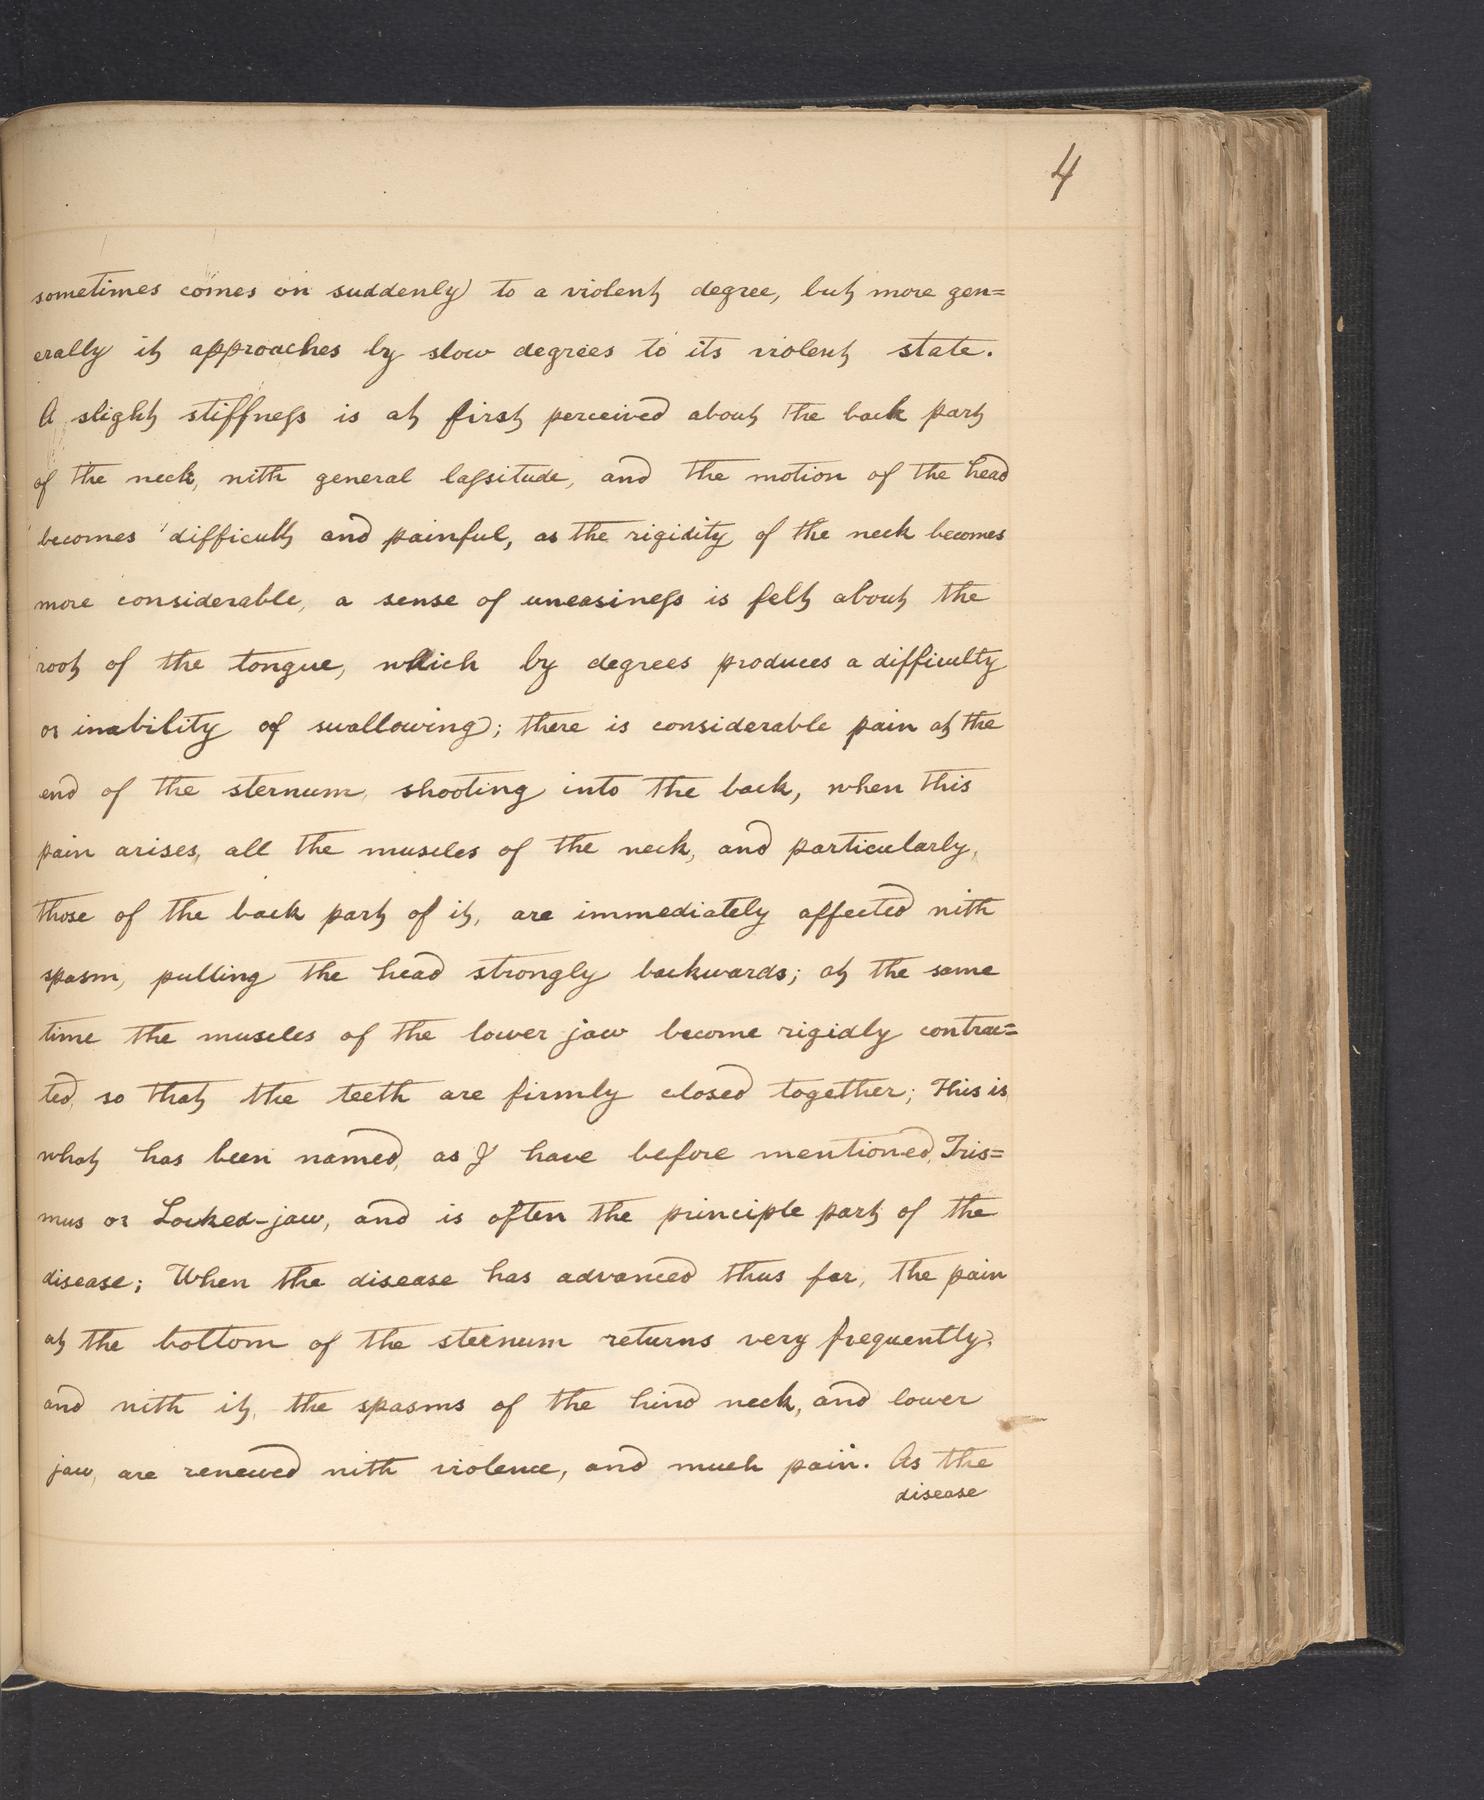 4
sometimes comes on suddenly to a violent degree, but more gen=
erally it approaches by slow degrees to its violent state.
A slight stiffneſs is at first perceived about the back part
of the neck, with general laſsitude, and the motion of the head
becomes difficult and painful, as the rigidity of the neck becomes
more considerable, a sense of uneasineſs is felt about the
root of the tongue, which by degrees produces a difficulty
or inability of swallowing; there is considerable pain at the
end of the sternum, shooting into the back, when this
pain arises, all the muscles of the neck, and particularly,
those of the back part of it, are immediately affected with
spasm, pulling the head strongly backwards; at the same
time the muscles of the lower jaw become rigidly contrac=
ted, so that the teeth are firmly closed together; This is
what has been named, as I have before mentioned, Tris=
mus or Locked-jaw, and is often the principle part of the
disease; When the disease has advanced thus far, the pain
at the bottom of the sternum returns very frequently.
and with it, the spasms of the hind neck, and lower
jaw, are renewed with violence, and much pain. As the
disease